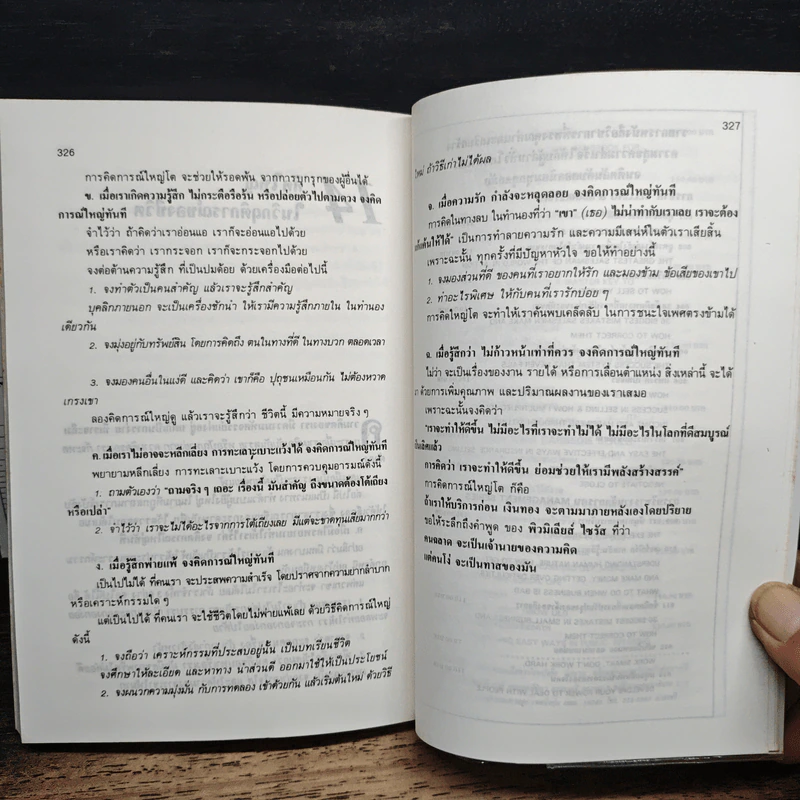 326
การคิดการณ์ใหญ่โต จะช่วยให้รอดพ้น จากการบุกรุกของผู้อื่นได้
ข. เมื่อเราเกิดความรู้สึก ไม่กระตือรือร้น หรือปล่อยตัวไปตามดวง จงคิด
การณ์ใหญ่ทันที
จำไว้ว่า ถ้าคิดว่าเราอ่อนแอ เราก็จะอ่อนแอไปด้วย
หรือเราคิดว่า เรากระจอก เราก็จะกระจอกไปด้วย
จงต่อต้านความรู้สึก ที่เป็นปมด้อย ด้วยเครื่องมือต่อไปนี้
1. จงทำตัวเป็นคนสำคัญ แล้วเราจะรู้สึกสำคัญ
บุคลิกภายนอก จะเป็นเครื่องชักนำ ให้เรามีความรู้สึกภายใน ในทำนอง
เดียวกัน
2. จงมุ่งอยู่กับทรัพย์สิน โดยการคิดถึง ตนในทางที่ดี ในทางบวก ตลอดเวลา
3. จงมองคนอื่นในแง่ดี และคิดว่า เขาก็คือ ปุถุชนเหมือนกัน ไม่ต้องหวาด
เกรงเขา
ลองคิดการณ์ใหญ่ดู แล้วเราจะรู้สึกว่า ชีวิตนี้ มีความหมายจริง ๆ
ค. เมื่อเราไม่อาจจะหลีกเลี่ยง การทะเลาะเบาะแว้งได้ จงคิดการณ์ใหญ่ทันที
พยายามหลีกเลี่ยง การทะเลาะเบาะแว้ง โดยการควบคุมอารมณ์ดังนี้
1. ถามตัวเองว่า "ถามจริง ๆ เถอะ เรื่องนี้ มันสำคัญ ถึงขนาดต้องโต้เถียง
หรือเปล่า"
2. จำไว้ว่า เราจะไม่ได้อะไรจากการโต้เถียงเลย มีแต่จะขาดทุนเสียมากกว่า
ง. เมื่อรู้สึกพ่ายแพ้ จงคิดการณ์ใหญ่ทันที
เป็นไปไม่ได้ ที่คนเรา จะประสพความสำเร็จ โดยปราศจากความยากลำบาก
หรือเคราะห์กรรมใด ๆ
แต่เป็นไปได้ ที่คนเรา จะใช้ชีวิตโดยไม่พ่ายแพ้เลย ด้วยวิธีคิดการณ์ใหญ่
ดังนี้
1. จงถือว่า เคราะห์กรรมที่ประสบอยู่นั้น เป็นบทเรียนชีวิต
จงศึกษาให้ละเอียด และหาทาง นำส่วนดี ออกมาใช้ให้เป็นประโยชน์
2. จงผนวกความมุ่งมั่น กับการทดลอง เข้าด้วยกัน แล้วเริ่มต้นใหม่ ด้วยวิธี
327
ใหม่ ถ้าวิธีเก่าไม่ได้ผล
จ. เมื่อความรัก กำลังจะหลุดลอย จงคิดการณ์ใหญ่ทันที
การคิดในทางลบ ในทำนองที่ว่า "เขา" (เธอ) ไม่น่าทำกับเราเลย เราจะต้อง
แก้แค้นให้ได้" เป็นการทำลายความรัก และความมีเสน่ห์ในตัวเราเสียสิ้น
เพราะฉะนั้น ทุกครั้งที่มีปัญหาหัวใจ ขอให้ทำอย่างนี้
1. จงมองส่วนที่ดี ของคนที่เราอยากให้รัก และมองข้าม ข้อเสียของเขาไป
2. ทำอะไรพิเศษ ให้กับคนที่เรารักบ่อย ๆ
การคิดใหญ่โต จะทำให้เราค้นพบเคล็ดลับ ในการชนะใจเพศตรงข้ามได้
ฉ. เมื่อรู้สึกว่า ไม่ก้าวหน้าเท่าที่ควร จงคิดการณ์ใหญ่ทันที
ไม่ว่า จะเป็นเรื่องของงาน รายได้ หรือการเลื่อนตำแหน่ง สิ่งเหล่านี้ จะได้
มา ด้วยการเพิ่มคุณภาพ และปริมาณผลงานของเราเสมอ
เพราะฉะนั้นจงคิดว่า
"เราจะทำให้ดีขึ้น ไม่มีอะไรที่เราจะทำไม่ได้ ไม่มีอะไรในโลกที่ดีสมบูรณ์
เป็นเลิศแล้ว
การคิดว่า เราจะทำให้ดีขึ้น ย่อมช่วยให้เรามีพลังสร้างสรรค์"
การคิดการณ์ใหญ่โต ก็คือ
ถ้าเราให้บริการก่อน เงินทอง จะตามมาภายหลังเองโดยปริยาย
ขอให้ระลึกถึงคำพูด ของ พิวมิเลียส์ ไซรัส ที่ว่า
คนฉลาด จะเป็นเจ้านายของความคิด
แต่คนโง่ จะเป็นทาสของมัน